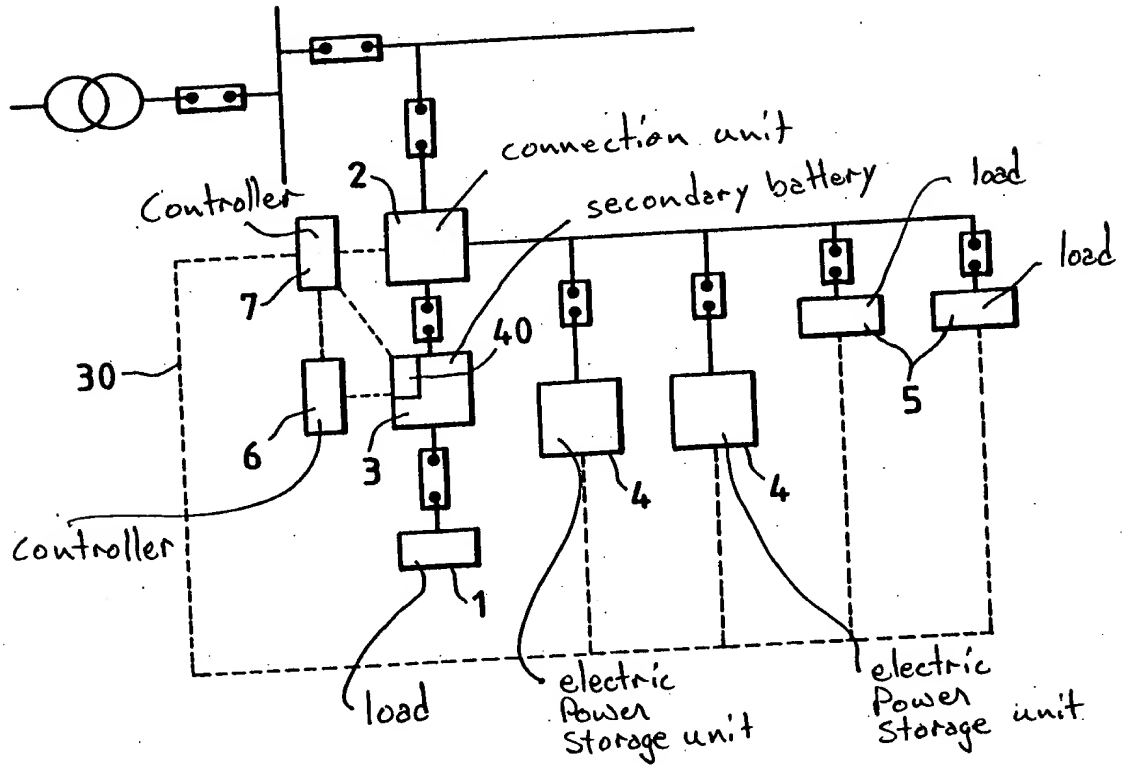 connection unit
2
load
Controller
secondary battery
load
7
40
30
5
6
3
4
4
controller
1
load
electric
Power
Storage unit
electric
Power
Storage unit